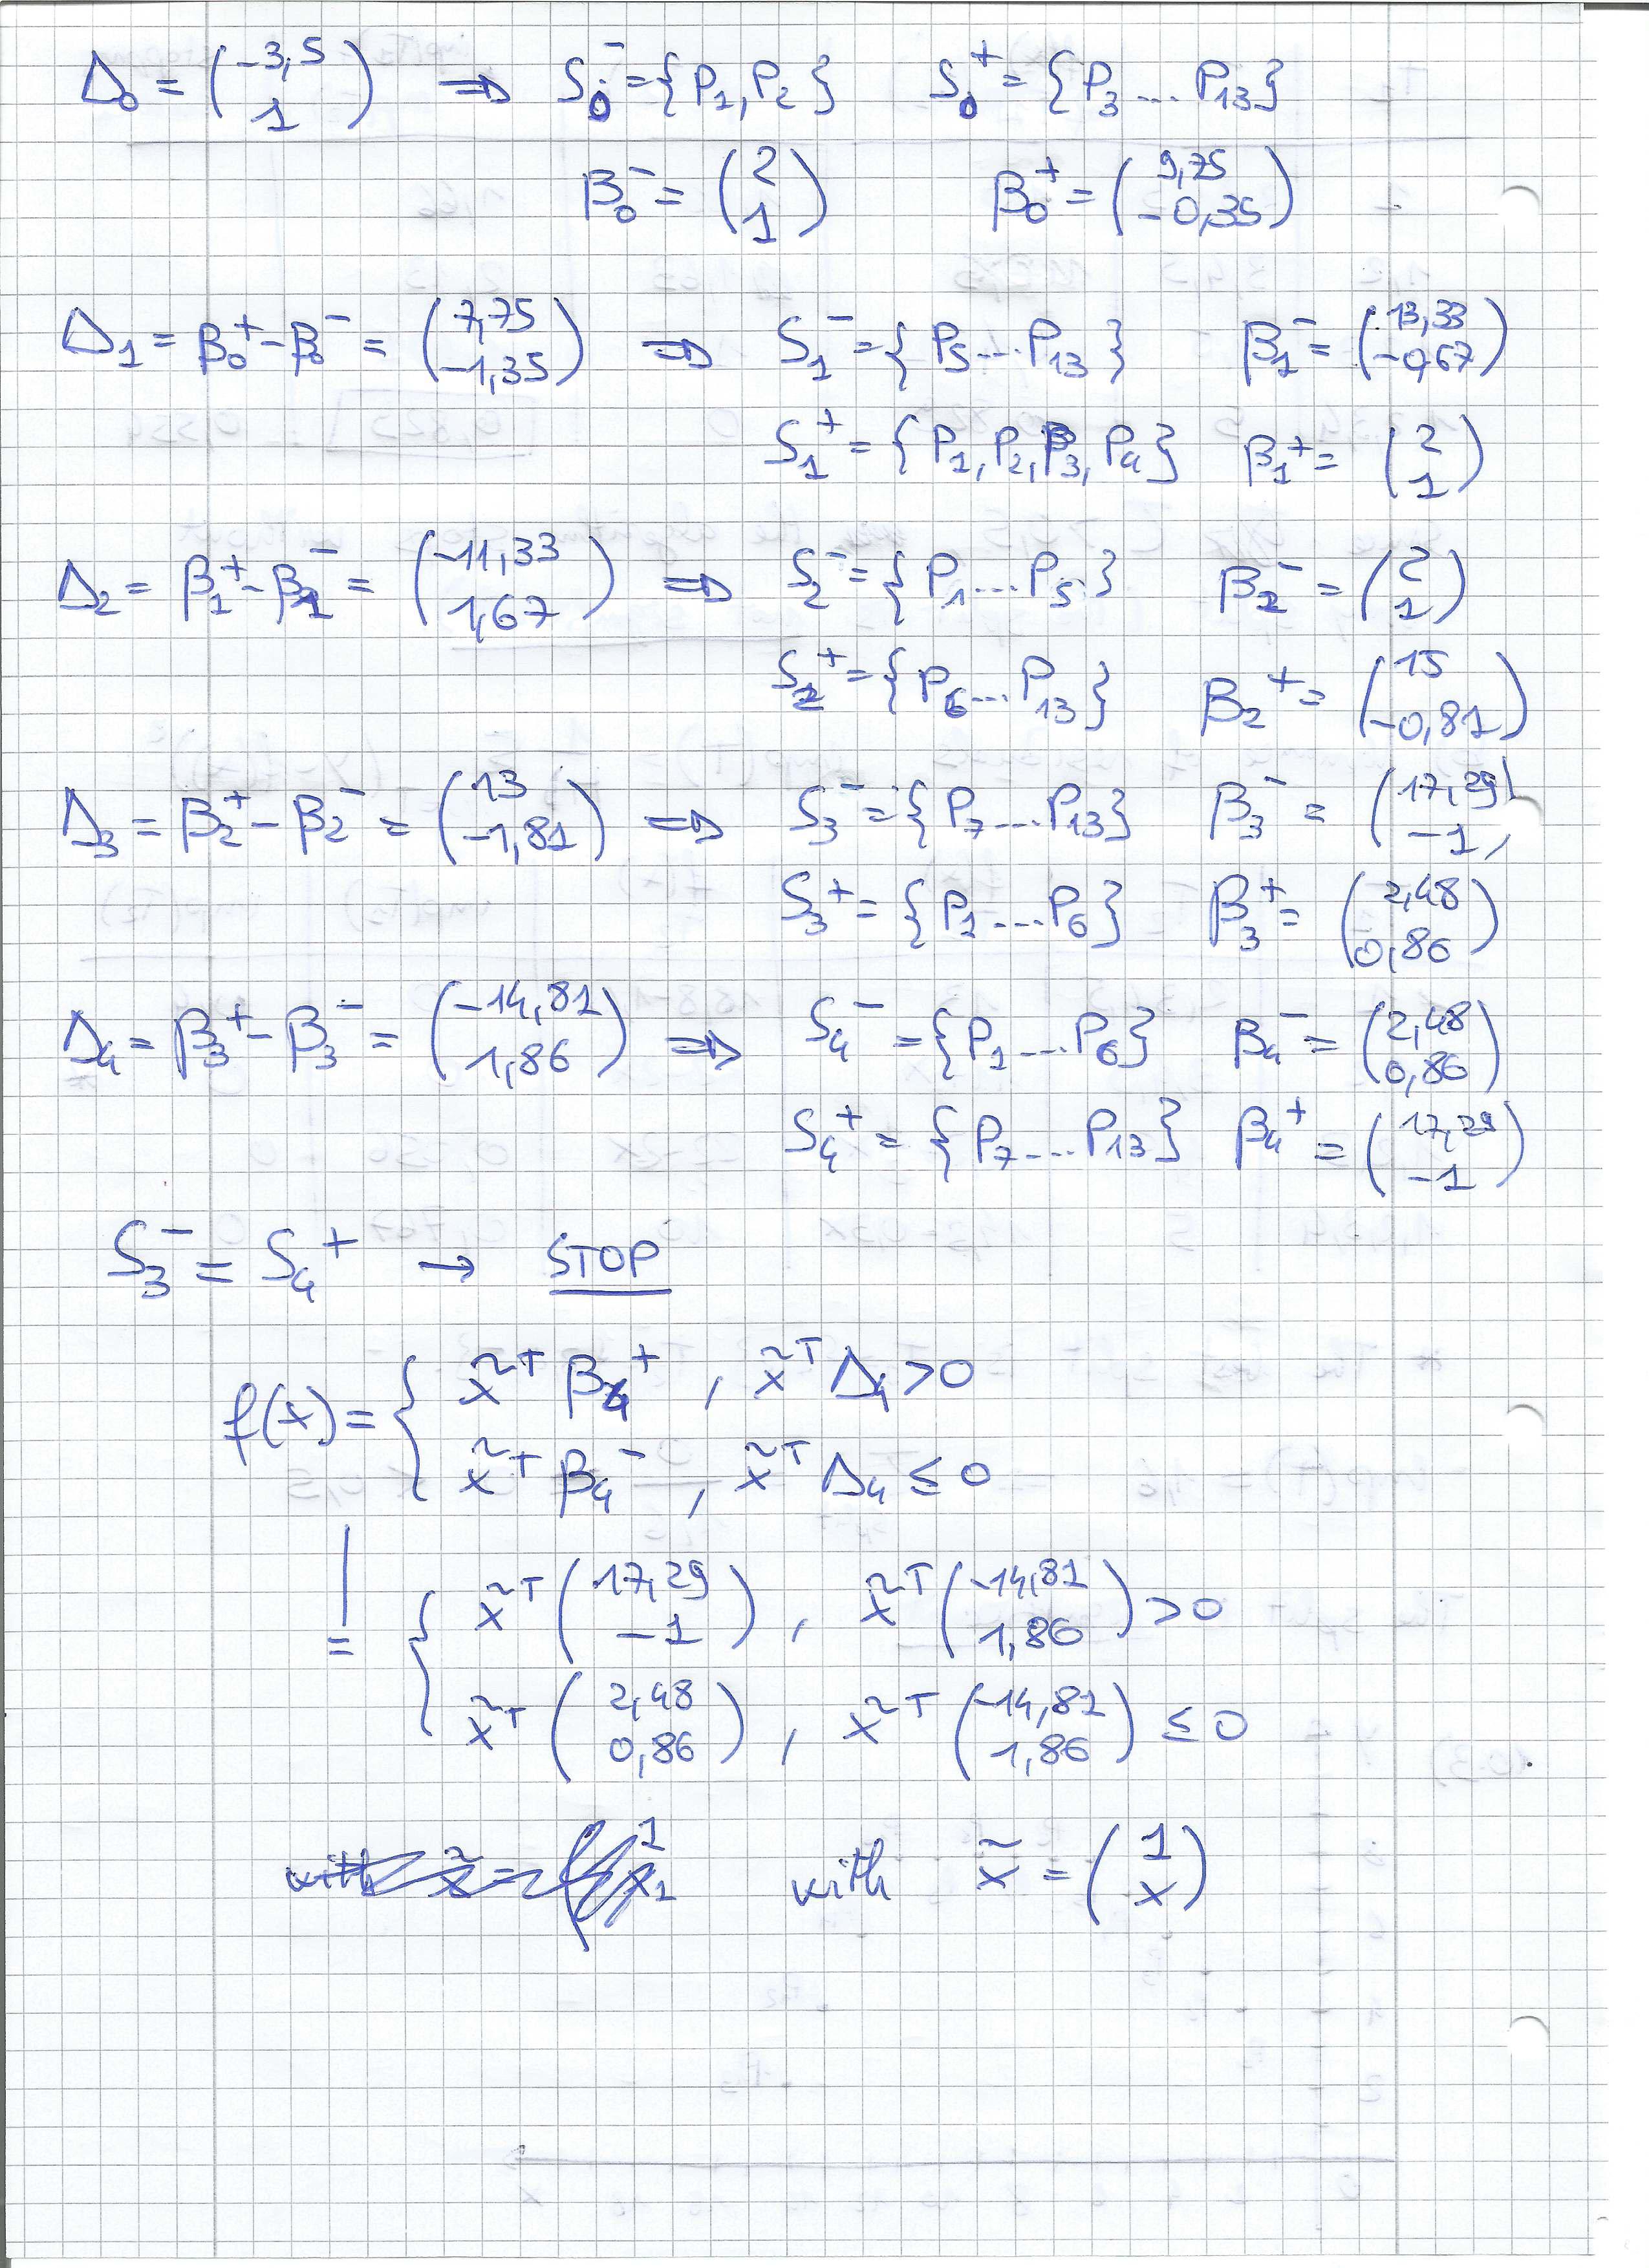 Δ₀ = (-3,5 1) ⇒ S₀⁻ = {P₁, P₂} S₀⁺ = {P₃ ... P₁₃}
β₀⁻ = (2 1) β₀⁺ = (9,75 -0,35)
Δ₁ = β₀⁺ - β₀⁻ = (7,75 -1,35) ⇒ S₁⁻ = {P₅ ... P₁₃} β₁⁻ = (13,33 -0,67)
S₁⁺ = {P₁, P₂, P₃, P₄} β₁⁺ = (2 1)
Δ₂ = β₁⁺ - β₁⁻ = (-11,33 1,67) ⇒ S₂⁻ = {P₁ ... P₅} β₂⁻ = (2 1)
S₂⁺ = {P₆ ... P₁₃} β₂⁺ = (15 -0,81)
Δ₃ = β₂⁺ - β₂⁻ = (13 -1,81) ⇒ S₃⁻ = {P₇ ... P₁₃} β₃⁻ = (17,29 -1)
S₃⁺ = {P₁ ... P₆} β₃⁺ = (2,48 0,86)
Δ₄ = β₃⁺ - β₃⁻ = (-14,81 1,86) ⇒ S₄⁻ = {P₁ ... P₆} β₄⁻ = (2,48 0,86)
S₄⁺ = {P₇ ... P₁₃} β₄⁺ = (17,29 -1)
S₃⁻ = S₄⁺ → STOP
f(x) = { x̃ᵀ β₄⁺ , x̃ᵀ Δ₄ > 0
x̃ᵀ β₄⁻ , x̃ᵀ Δ₄ ≤ 0
= { x̃ᵀ (17,29 -1) , x̃ᵀ (-14,81 1,86) > 0
x̃ᵀ (2,48 0,86) , x̃ᵀ (-14,81 1,86) ≤ 0
with x̃ = (1 x)